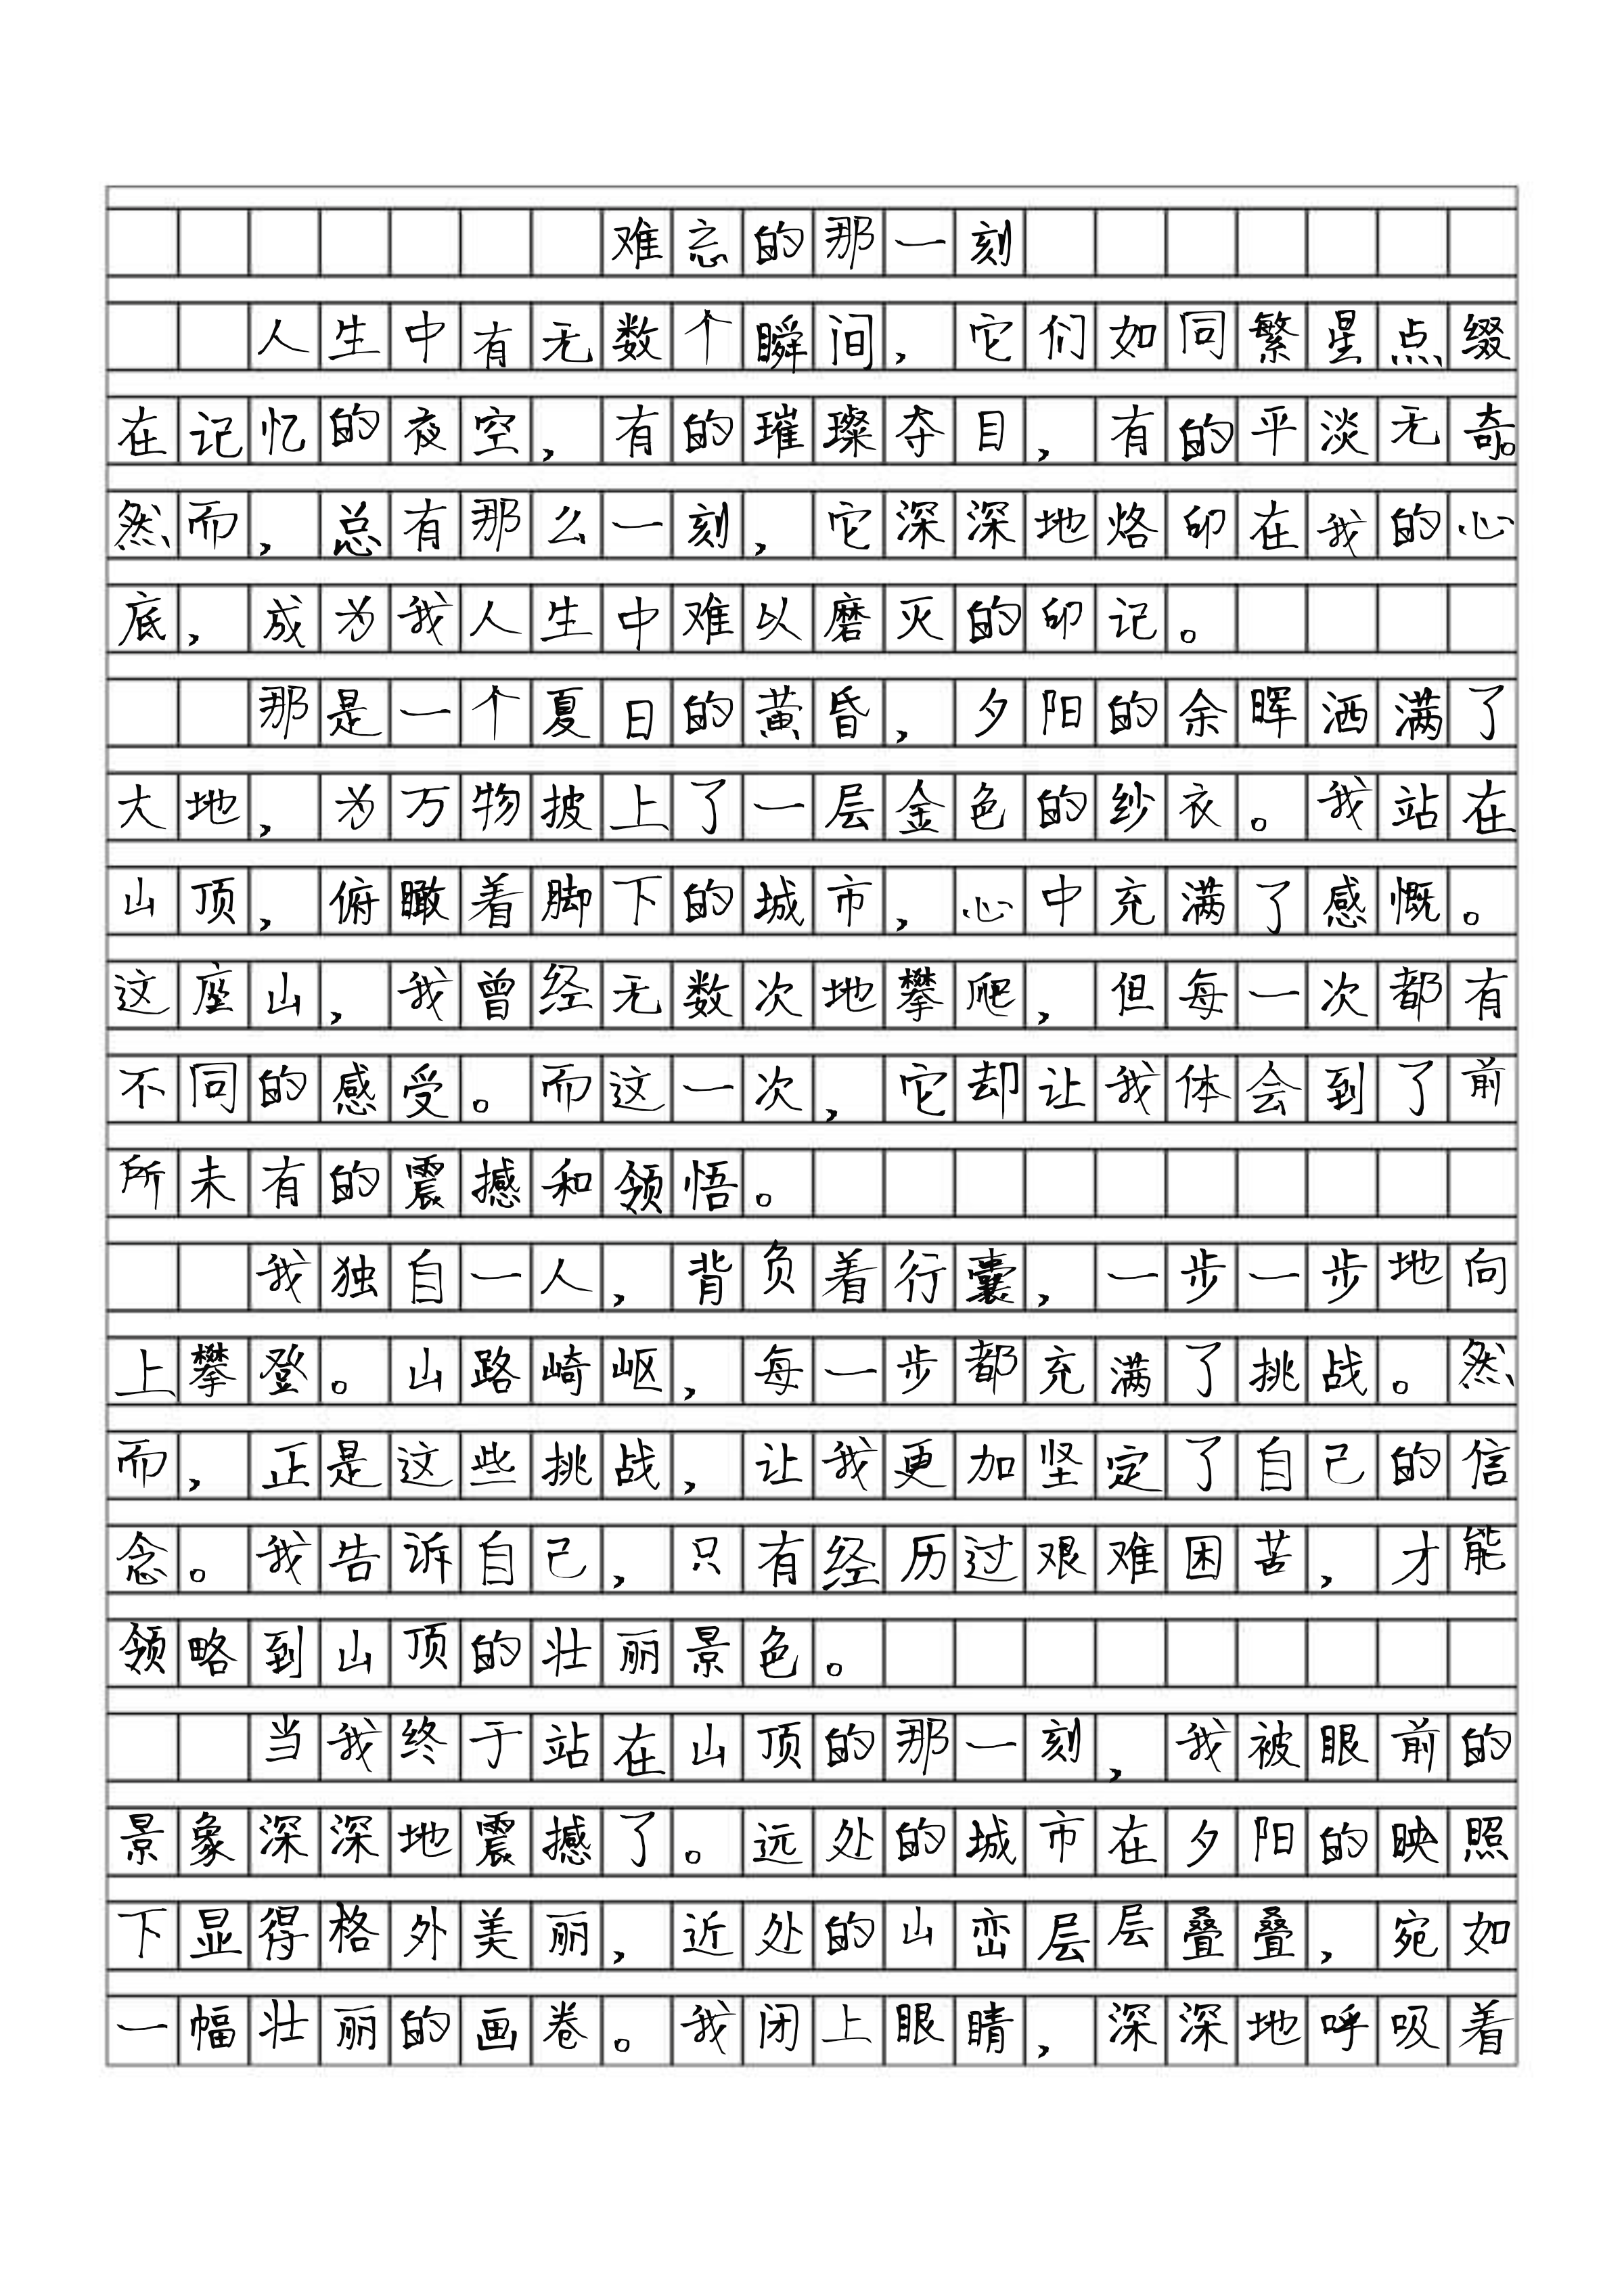 难忘的那一刻
人生中有无数个瞬间，它们如同繁星点缀
在记忆的夜空，有的璀璨夺目，有的平淡无奇。
然而，总有那么一刻，它深深地烙印在我的心
底，成为我人生中难以磨灭的印记。
那是一个夏日的黄昏，夕阳的余晖洒满了
大地，为万物披上了一层金色的纱衣。我站在
山顶，俯瞰着脚下的城市，心中充满了感慨。
这座山，我曾经无数次地攀爬，但每一次都有
不同的感受。而这一次，它却让我体会到了前
所未有的震撼和领悟。
我独自一人，背负着行囊，一步一步地向
上攀登。山路崎岖，每一步都充满了挑战。然
而，正是这些挑战，让我更加坚定了自己的信
念。我告诉自己，只有经历过艰难困苦，才能
领略到山顶的壮丽景色。
当我终于站在山顶的那一刻，我被眼前的
景象深深地震撼了。远处的城市在夕阳的映照
下显得格外美丽，近处的山峦层层叠叠，宛如
一幅壮丽的画卷。我闭上眼睛，深深地呼吸着